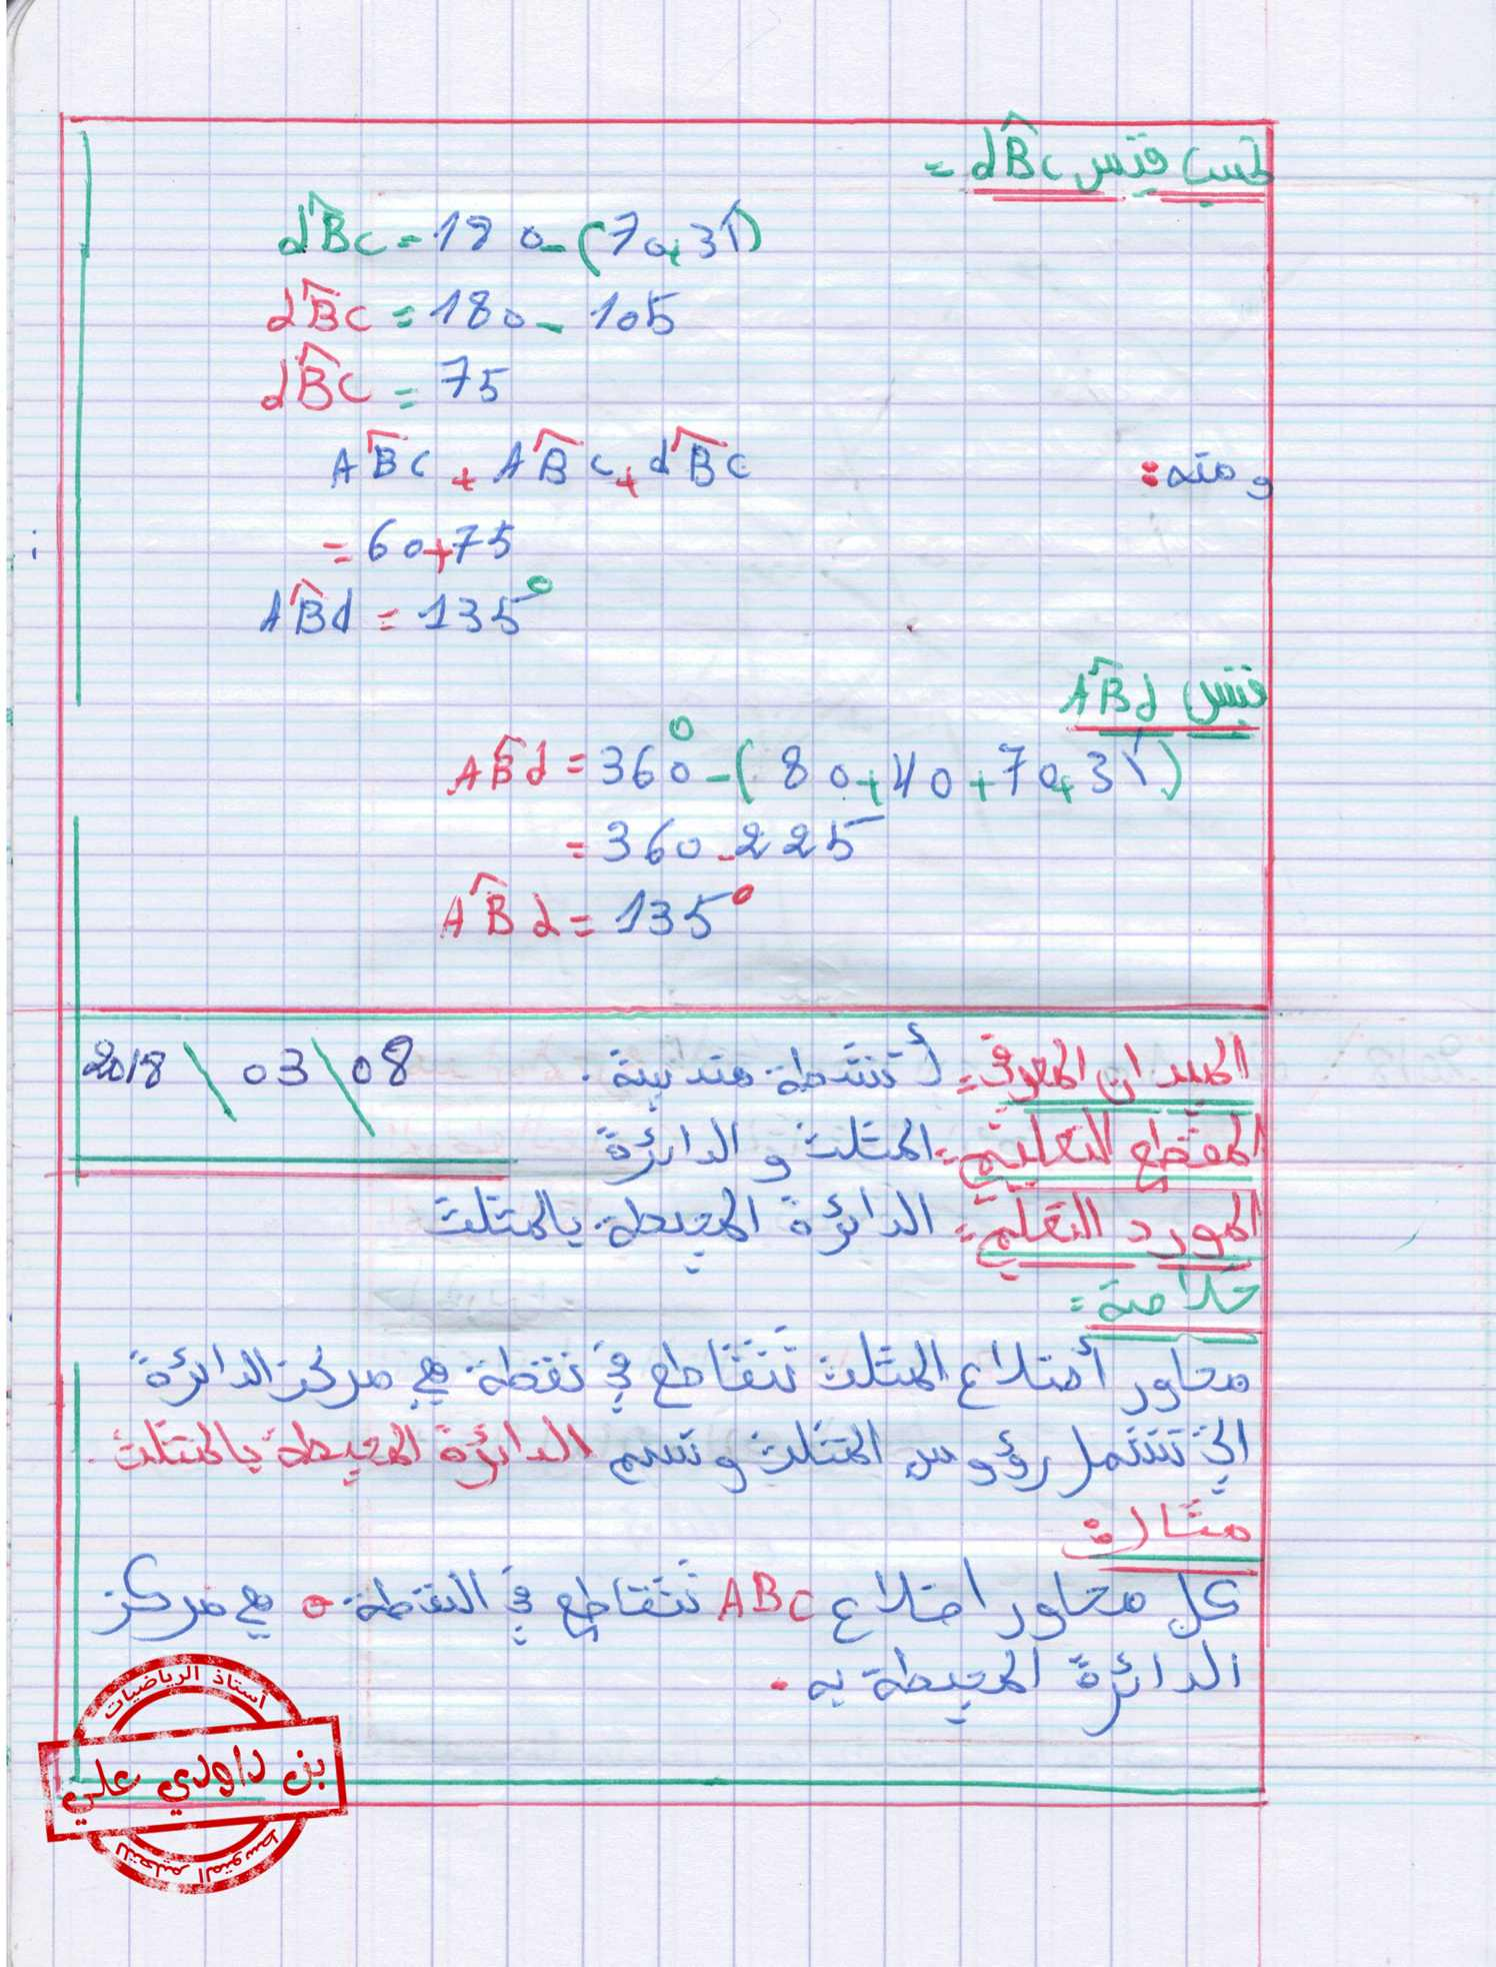 نحسب قيس dB̂c =
dB̂c = 180 - (70+35)
dB̂c = 180 - 105
dB̂c = 75
ومنه: AB̂c + AB̂c + dB̂c
= 60+75
AB̂d = 135°
قيس AB̂d
AB̂d = 360° - ( 80+40+70+35)
= 360-225
AB̂d = 135°
الميدان المعرفي = أنشطة هندسية . 08 \ 03 \ 2018
المقطع التعليمي = المثلث و الدائرة
المورد التعلمي = الدائرة المحيطة بالمثلث
خلاصة =
محاور أضلاع المثلث تتقاطع في نقطة هي مركز الدائرة
التي تشمل رؤوس المثلث وتسمى الدائرة المحيطة بالمثلث .
مثال :
كل محاور اضلاع ABC تتقاطع في النقطة o هي مركز
الدائرة المحيطة به .
أستاذ الرياضيات
بن داودي علي
للتعليم المتوسط